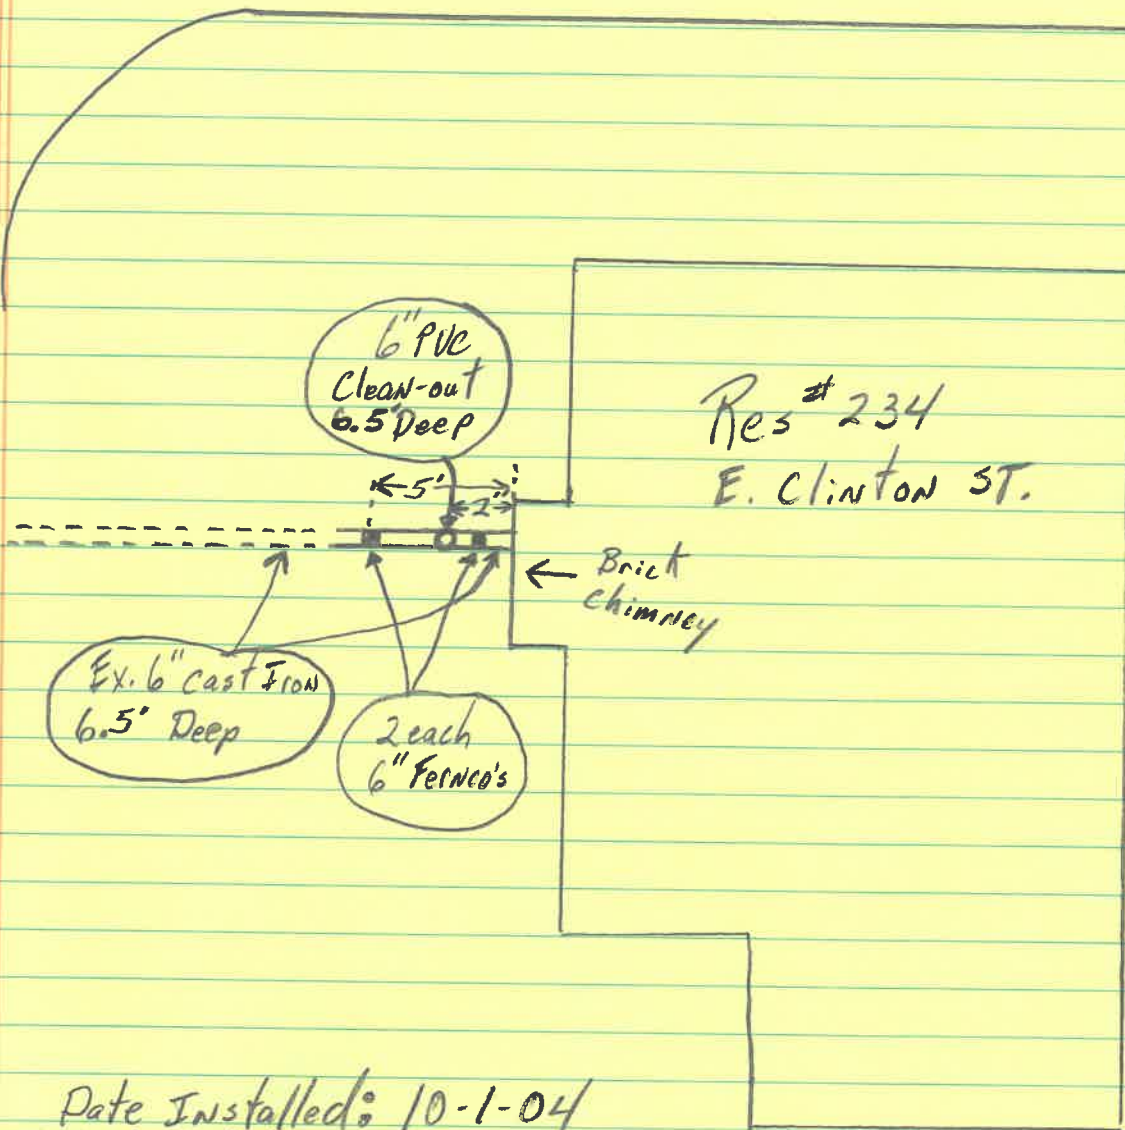 6" PVC
Clean-out
6.5' Deep
Res # 234
E. Clinton ST.
5'
2'
Brick
Chimney
Ex. 6" cast Iron
6.5' Deep
2 each
6" Fernco's
Date Installed: 10-1-04